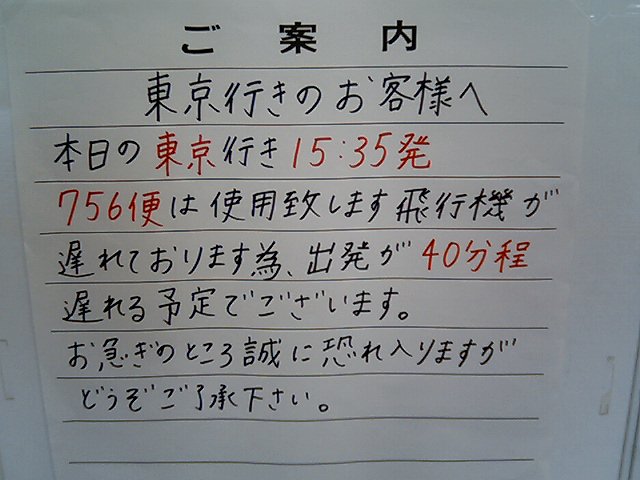 ご案内
東京行きのお客様へ
本日の東京行き15:35発
756便は使用致します飛行機が
遅れております為、出発が40分程
遅れる予定でございます。
お急ぎのところ誠に恐れ入りますが
どうぞご了承下さい。